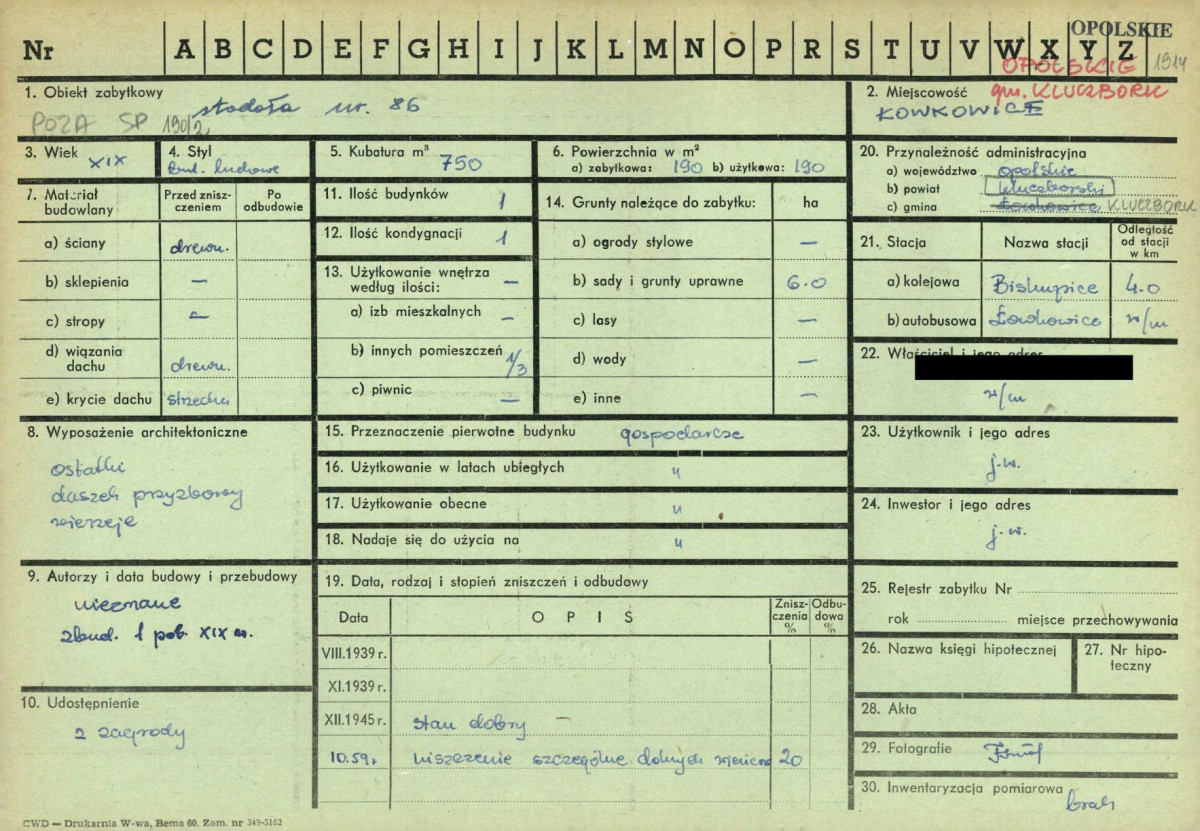 OPOLSKIE
Nr A B C D E F G H I J K L M N O P R S T U V W X Y Z
OPOLSKIE 1914
1. Obiekt zabytkowy stodoła nr. 86
POZA SP 190/2
2. Miejscowość gm. KLUCZBORK
ŁOWKOWICE
3. Wiek XIX
4. Styl bud. ludowe
5. Kubatura m³ 750
6. Powierzchnia w m²
a) zabytkowa: 190 b) użytkowa: 190
7. Materiał budowlany
Przed zniszczeniem
Po odbudowie
a) ściany drewn.
b) sklepienia —
c) stropy —
d) wiązania dachu drewn.
e) krycie dachu strzecha
11. Ilość budynków 1
12. Ilość kondygnacji 1
13. Użytkowanie wnętrza według ilości: —
a) izb mieszkalnych —
b) innych pomieszczeń 1/3
c) piwnic —
14. Grunty należące do zabytku: ha
a) ogrody stylowe —
b) sady i grunty uprawne 6.0
c) lasy —
d) wody —
e) inne —
20. Przynależność administracyjna
a) województwo opolskie
b) powiat kluczborski
c) gmina Łowkowice KLUCZBORK
21. Stacja Nazwa stacji Odległość od stacji w km
a) kolejowa Biskupice 4.0
b) autobusowa Łowkowice n/m
22. Właściciel i jego adres
n/m
8. Wyposażenie architektoniczne
ostatki
daszek przyzbowy
wierzeje
15. Przeznaczenie pierwotne budynku gospodarcze
16. Użytkowanie w latach ubiegłych "
17. Użytkowanie obecne "
18. Nadaje się do użycia na "
23. Użytkownik i jego adres
j.w.
24. Inwestor i jego adres
j.w.
9. Autorzy i data budowy i przebudowy
nieznane
zbud. 1 poł. XIX w.
19. Data, rodzaj i stopień zniszczeń i odbudowy
Data OPIS Zniszczenia % Odbudowa %
VIII.1939 r.
XI.1939 r.
XII.1945 r. stan dobry —
10.59 r. niszczenie szczególnie dolnych 20
25. Rejestr zabytku Nr
rok miejsce przechowywania
26. Nazwa księgi hipotecznej
27. Nr hipoteczny
10. Udostępnienie
z zagrody
28. Akta
29. Fotografie
30. Inwentaryzacja pomiarowa
brak
CWD — Drukarnia W-wa, Bema 60. Zam. nr 349-5162